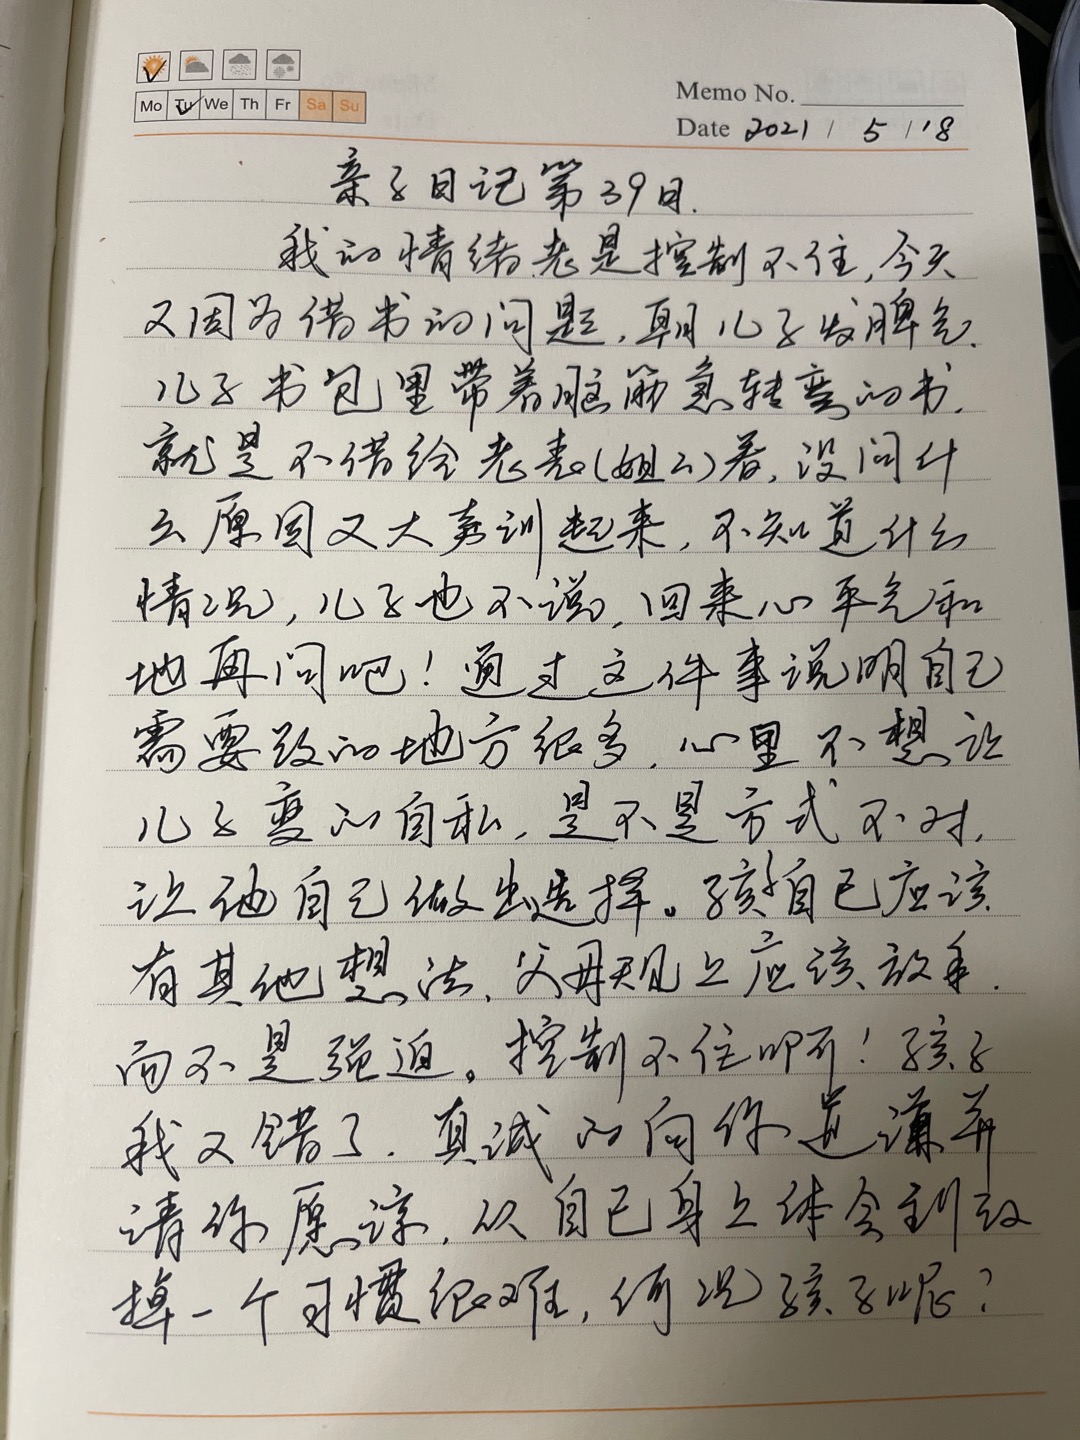 Mo Tu We Th Fr Sa Su
Memo No.
Date 2021 / 5 / 18
亲子日记第39日.
我的情绪老是控制不住,今天
又因为借书的问题,朝儿子发脾气.
儿子书包里带着脑筋急转弯的书.
就是不借给老表(姐么)看,没问什
么原因又大声训起来,不知道什么
情况,儿子也不说,回来心平气和
地再问吧!通过这件事说明自己
需要改的地方很多.心里不想让
儿子变的自私,是不是方式不对,
让他自己做出选择。孩子自己应该
有其他想法,父母观上应该放手.
而不是强迫。控制不住啊!孩子
我又错了.真诚的向你道谦并
请你愿谅,从自己身上体会到改
掉一个习惯很难,何况孩子呢?